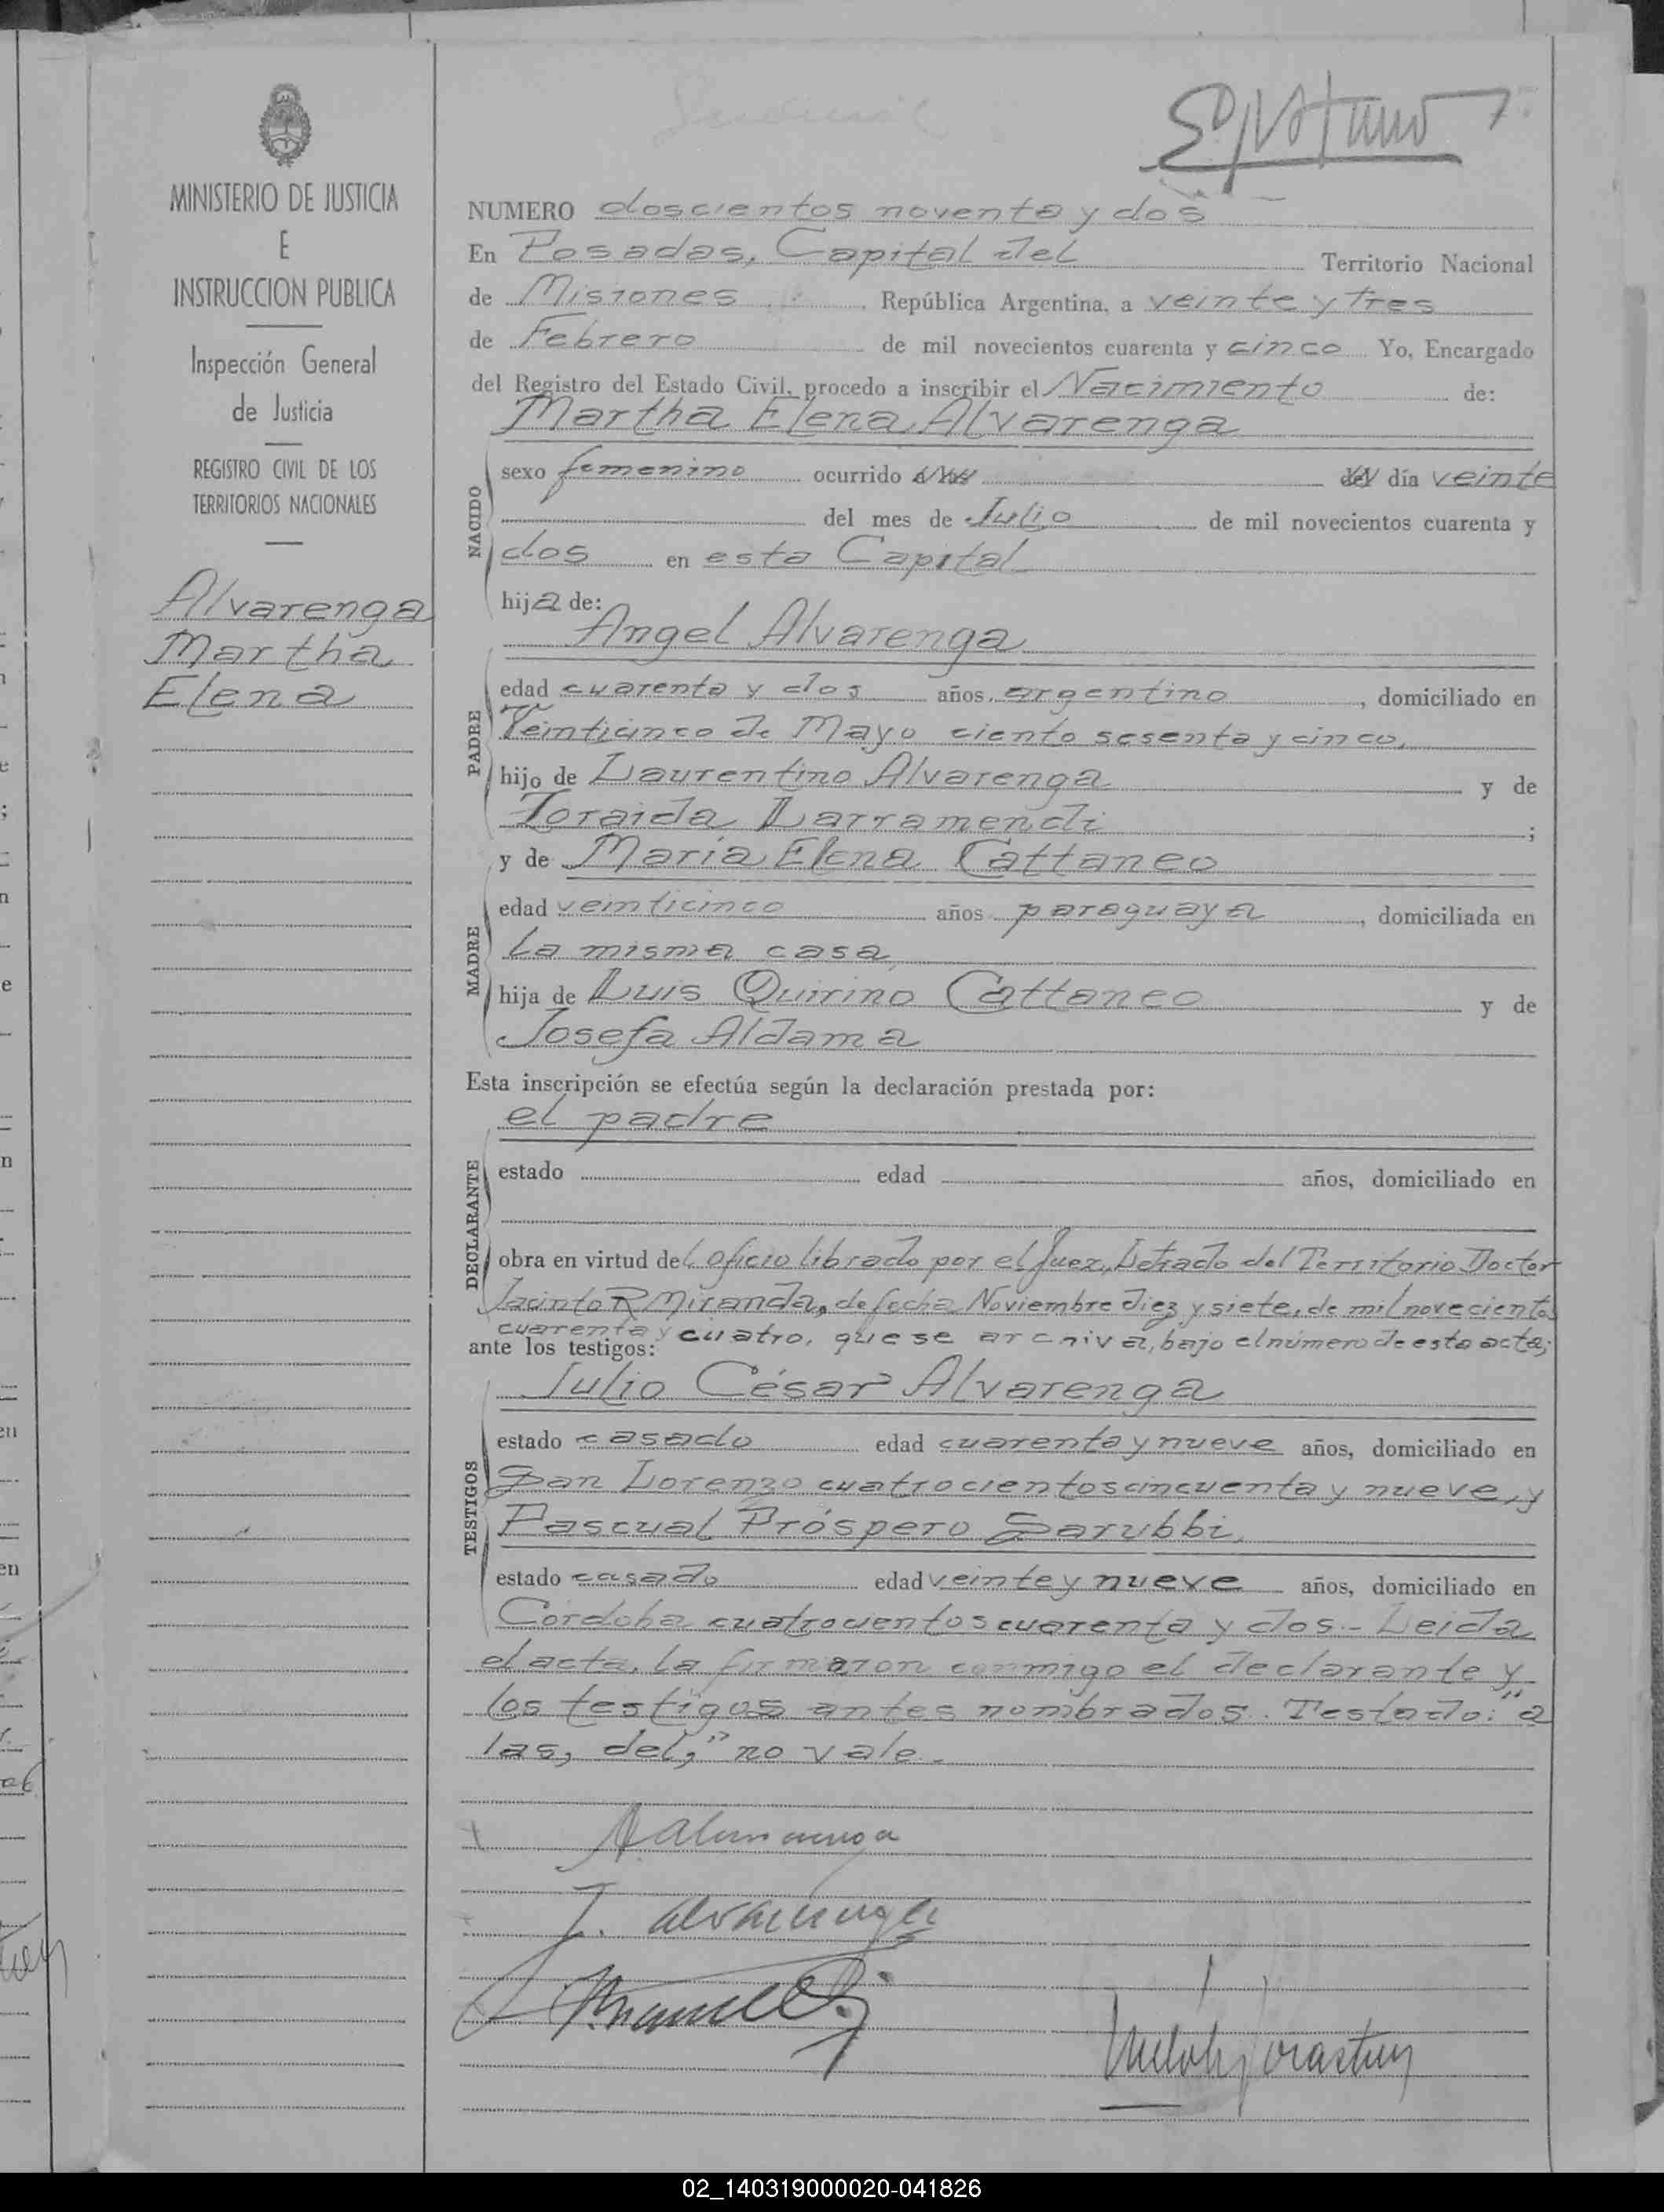 MINISTERIO DE JUSTICIA
E
INSTRUCCION PUBLICA
Inspección General
de Justicia
REGISTRO CIVIL DE LOS
TERRITORIOS NACIONALES
Alvarenga
Martha
Elena
NUMERO doscientos noventa y dos
En Posadas, Capital del Territorio Nacional
de Misiones República Argentina, a veinte y tres
de Febrero de mil novecientos cuarenta y cinco Yo, Encargado
del Registro del Estado Civil, procedo a inscribir el Nacimiento de:
Martha Elena Alvarenga
NACIDO
sexo femenino ocurrido a las del día veinte
del mes de Julio de mil novecientos cuarenta y
dos en esta Capital
hija de:
Angel Alvarenga
PADRE
edad cuarenta y dos años, argentino, domiciliado en
Veinticinco de Mayo ciento sesenta y cinco,
hijo de Laurentino Alvarenga y de
Zoraida Larramendi;
y de Maria Elena Cattaneo
MADRE
edad veinticinco años paraguaya, domiciliada en
La misma casa,
hija de Luis Quirino Cattaneo y de
Josefa Aldama
Esta inscripción se efectúa según la declaración prestada por:
el padre
DECLARANTE
estado edad años, domiciliado en
obra en virtud del oficio librado por el Juez Letrado del Territorio Doctor
Jacinto R Miranda, de fecha Noviembre diez y siete, de mil novecientos
cuarenta y cuatro, que se archiva, bajo el número de esta acta;
ante los testigos:
Julio César Alvarenga
TESTIGOS
estado casado edad cuarenta y nueve años, domiciliado en
San Lorenzo cuatrocientos cincuenta y nueve, y
Pascual Próspero Sarubbi,
estado casado edad veinte y nueve años, domiciliado en
Córdoba cuatrocientos cuarenta y dos.- Leida
el acta, la firmaron conmigo el declarante y
los testigos antes nombrados. Testado: "a
las, del," no vale.
A Alvarenga
J. Alvarenga
02_140319000020-041826